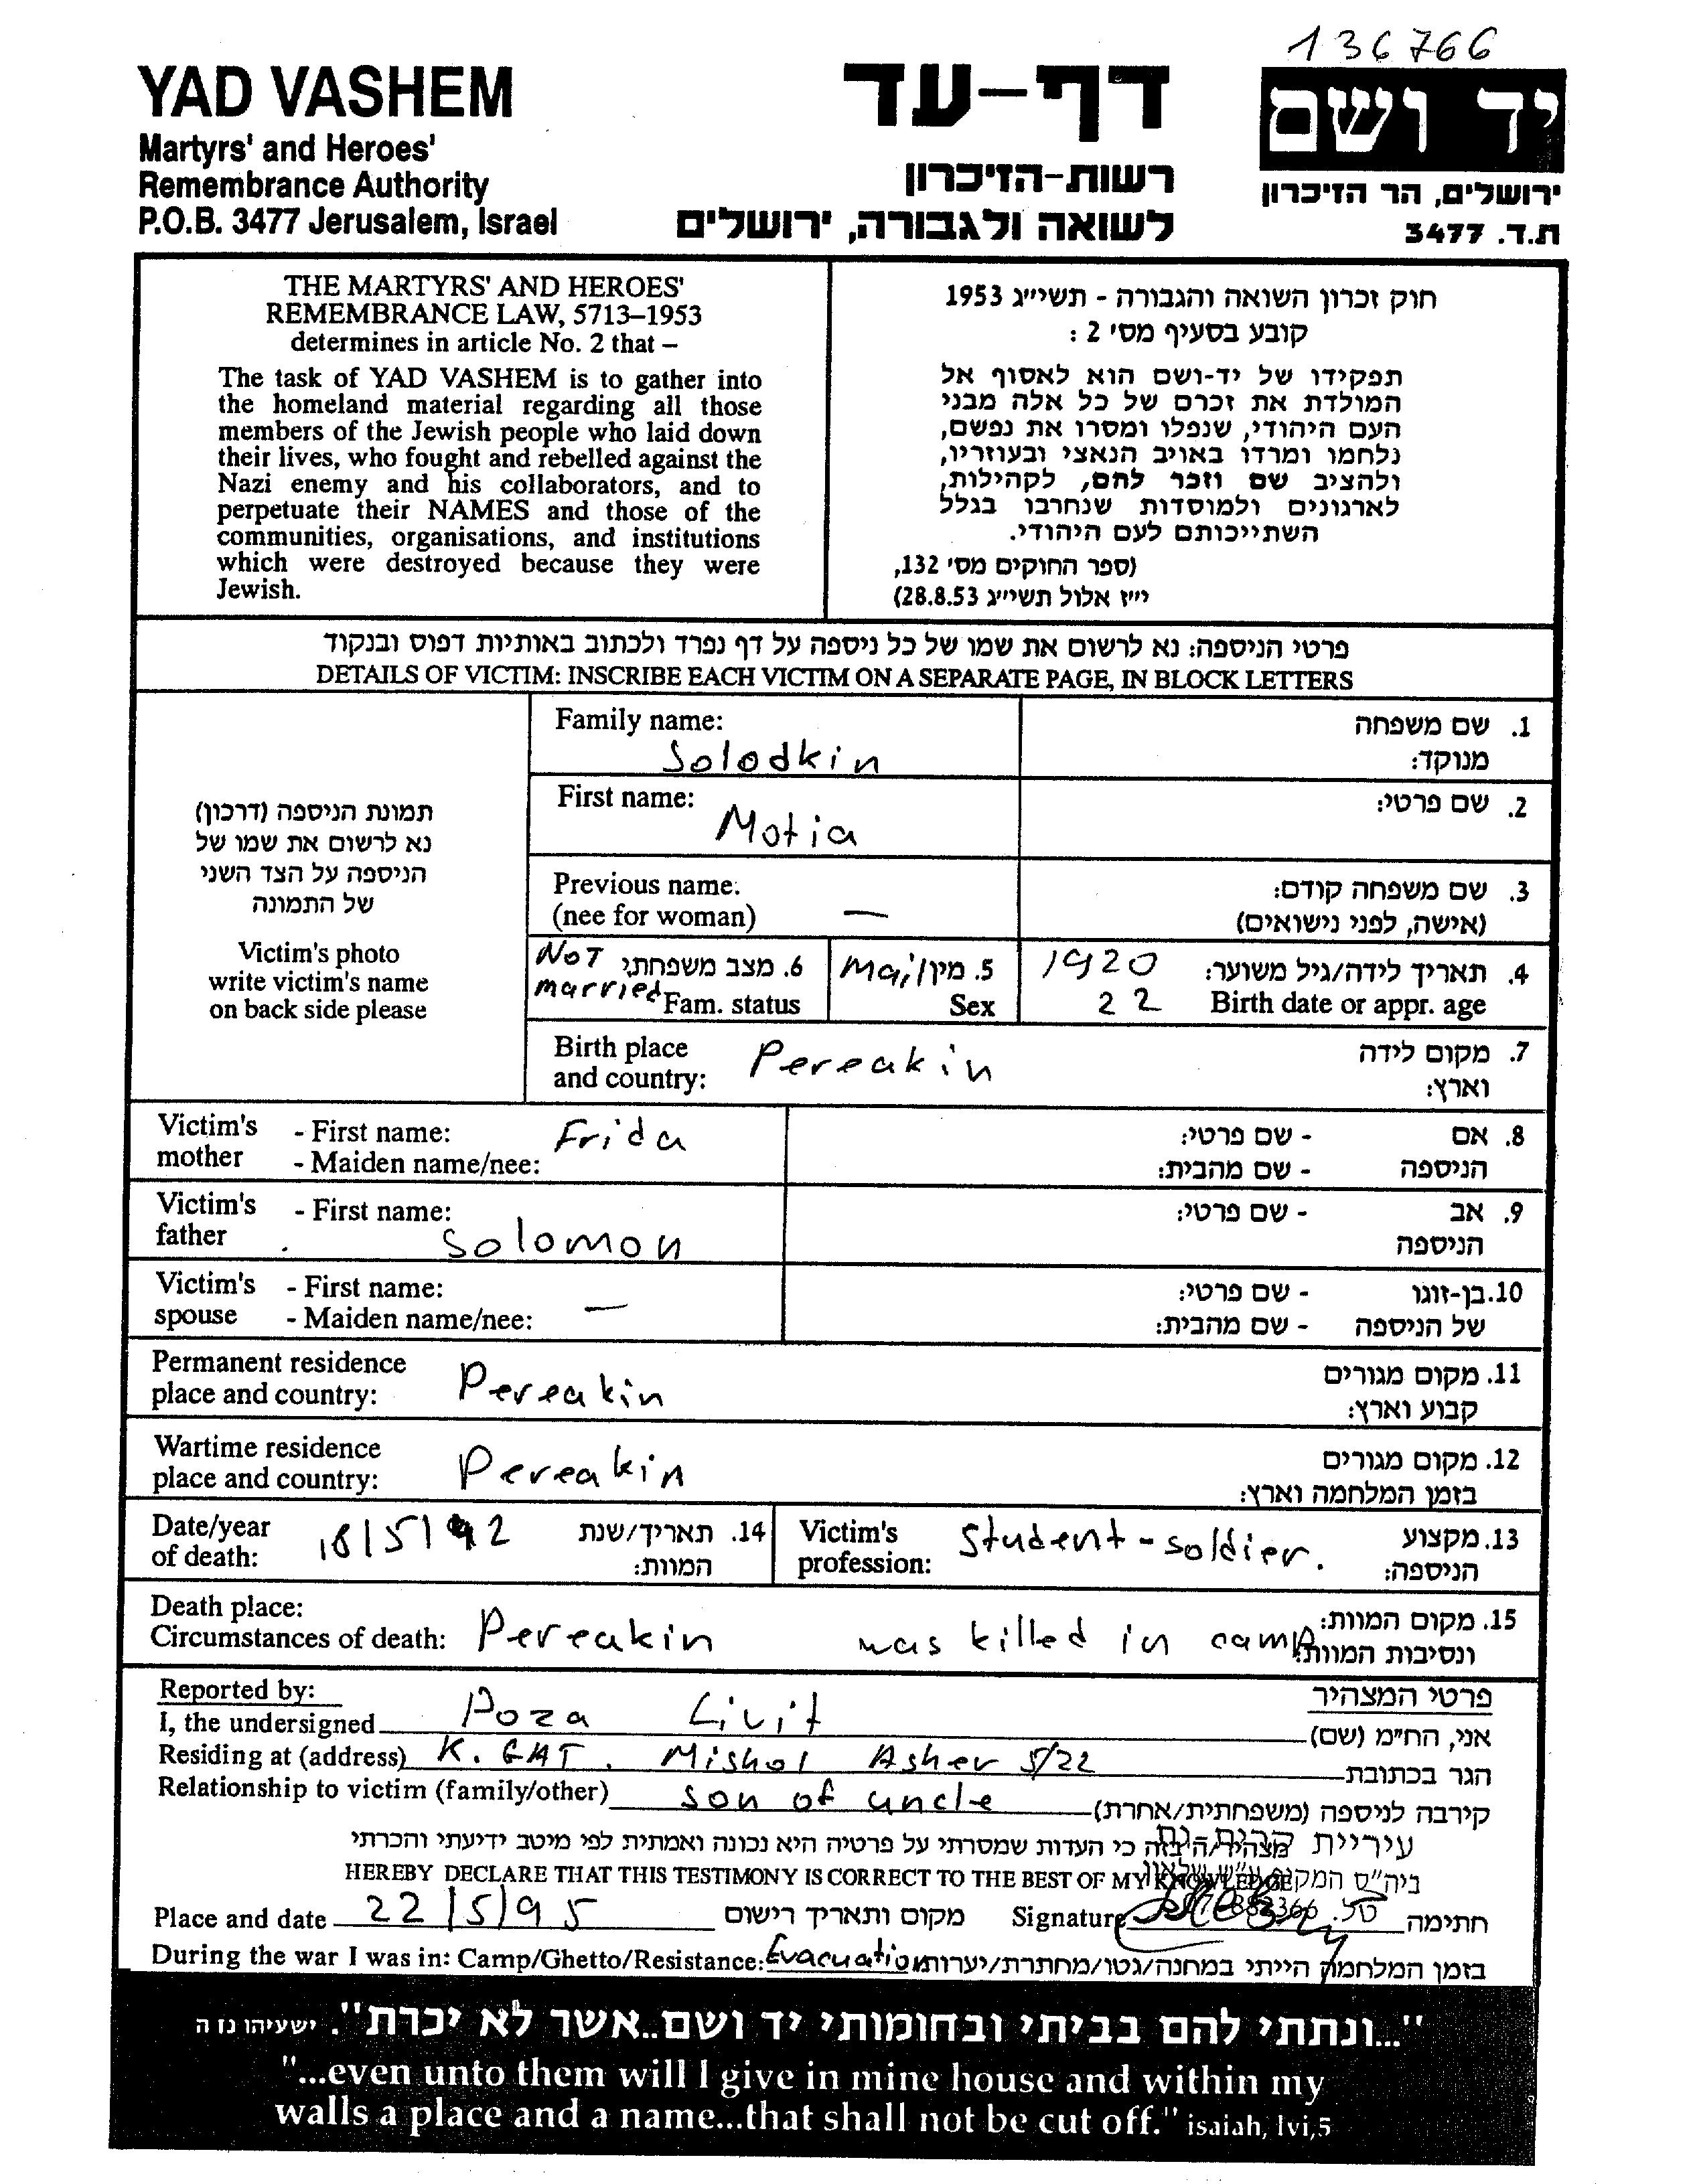 136766
YAD VASHEM
Martyrs' and Heroes'
Remembrance Authority
P.O.B. 3477 Jerusalem, Israel
דף-עד
רשות-הזיכרון
לשואה ולגבורה, ירושלים
יד ושם
ירושלים, הר הזיכרון
ת.ד. 3477
THE MARTYRS' AND HEROES'
REMEMBRANCE LAW, 5713–1953
determines in article No. 2 that –
The task of YAD VASHEM is to gather into
the homeland material regarding all those
members of the Jewish people who laid down
their lives, who fought and rebelled against the
Nazi enemy and his collaborators, and to
perpetuate their NAMES and those of the
communities, organisations, and institutions
which were destroyed because they were
Jewish.
חוק זכרון השואה והגבורה - תשי״ג 1953
קובע בסעיף מס׳ 2 :
תפקידו של יד-ושם הוא לאסוף אל
המולדת את זכרם של כל אלה מבני
העם היהודי, שנפלו ומסרו את נפשם,
נלחמו ומרדו באויב הנאצי ובעוזריו,
ולהציב שם וזכר להם, לקהילות,
לארגונים ולמוסדות שנחרבו בגלל
השתייכותם לעם היהודי.
(ספר החוקים מס׳ 132,
י״ז אלול תשי״ג 28.8.53)
פרטי הניספה: נא לרשום את שמו של כל ניספה על דף נפרד ולכתוב באותיות דפוס ובנקוד
DETAILS OF VICTIM: INSCRIBE EACH VICTIM ON A SEPARATE PAGE, IN BLOCK LETTERS
תמונת הניספה (דרכון)
נא לרשום את שמו של
הניספה על הצד השני
של התמונה
Victim's photo
write victim's name
on back side please
Family name: 1. שם משפחה
Solodkin מנוקד:
First name: 2. שם פרטי:
Motia
Previous name. 3. שם משפחה קודם:
(nee for woman) — (אישה, לפני נישואים)
NOT 6. מצב משפחתי, Mail 5. מין 1920 4. תאריך לידה/גיל משוער:
married Fam. status Sex 22 Birth date or appr. age
Birth place Pereakin 7. מקום לידה
and country: וארץ:
Victim's - First name: Frida - שם פרטי: 8. אם
mother - Maiden name/nee: - שם מהבית: הניספה
Victim's - First name: - שם פרטי: 9. אב
father Solomon הניספה
Victim's - First name: - שם פרטי: 10. בן-זוגו
spouse - Maiden name/nee: — - שם מהבית: של הניספה
Permanent residence 11. מקום מגורים
place and country: Pereakin קבוע וארץ:
Wartime residence 12. מקום מגורים
place and country: Pereakin בזמן המלחמה וארץ:
Date/year 18/5/42 14. תאריך/שנת Victim's student-soldier. 13. מקצוע
of death: המוות: profession: הניספה:
Death place: 15. מקום המוות:
Circumstances of death: Pereakin was killed in camp ונסיבות המוות:
Reported by: פרטי המצהיר
I, the undersigned Poza Livit אני, הח״מ (שם)
Residing at (address) K. GAT. Mishol Asher 5/22 הגר בכתובת
Relationship to victim (family/other) son of uncle קירבה לניספה (משפחתית/אחרת)
מצהיר/ה בזה כי העדות שמסרתי על פרטיה היא נכונה ואמתית לפי מיטב ידיעתי והכרתי
עיריית קרית-גת
HEREBY DECLARE THAT THIS TESTIMONY IS CORRECT TO THE BEST OF MY KNOWLEDGE
ביה״ס המקיף ע״ש
Place and date 22/5/95 מקום ותאריך רישום Signature חתימה
טל. 882366
During the war I was in: Camp/Ghetto/Resistance: Evacuation בזמן המלחמה הייתי במחנה/גטו/מחתרת/יערות
"...ונתתי להם בביתי ובחומותי יד ושם..אשר לא יכרת". ישעיהו נז ה
"...even unto them will I give in mine house and within my
walls a place and a name...that shall not be cut off." isaiah, lvi,5